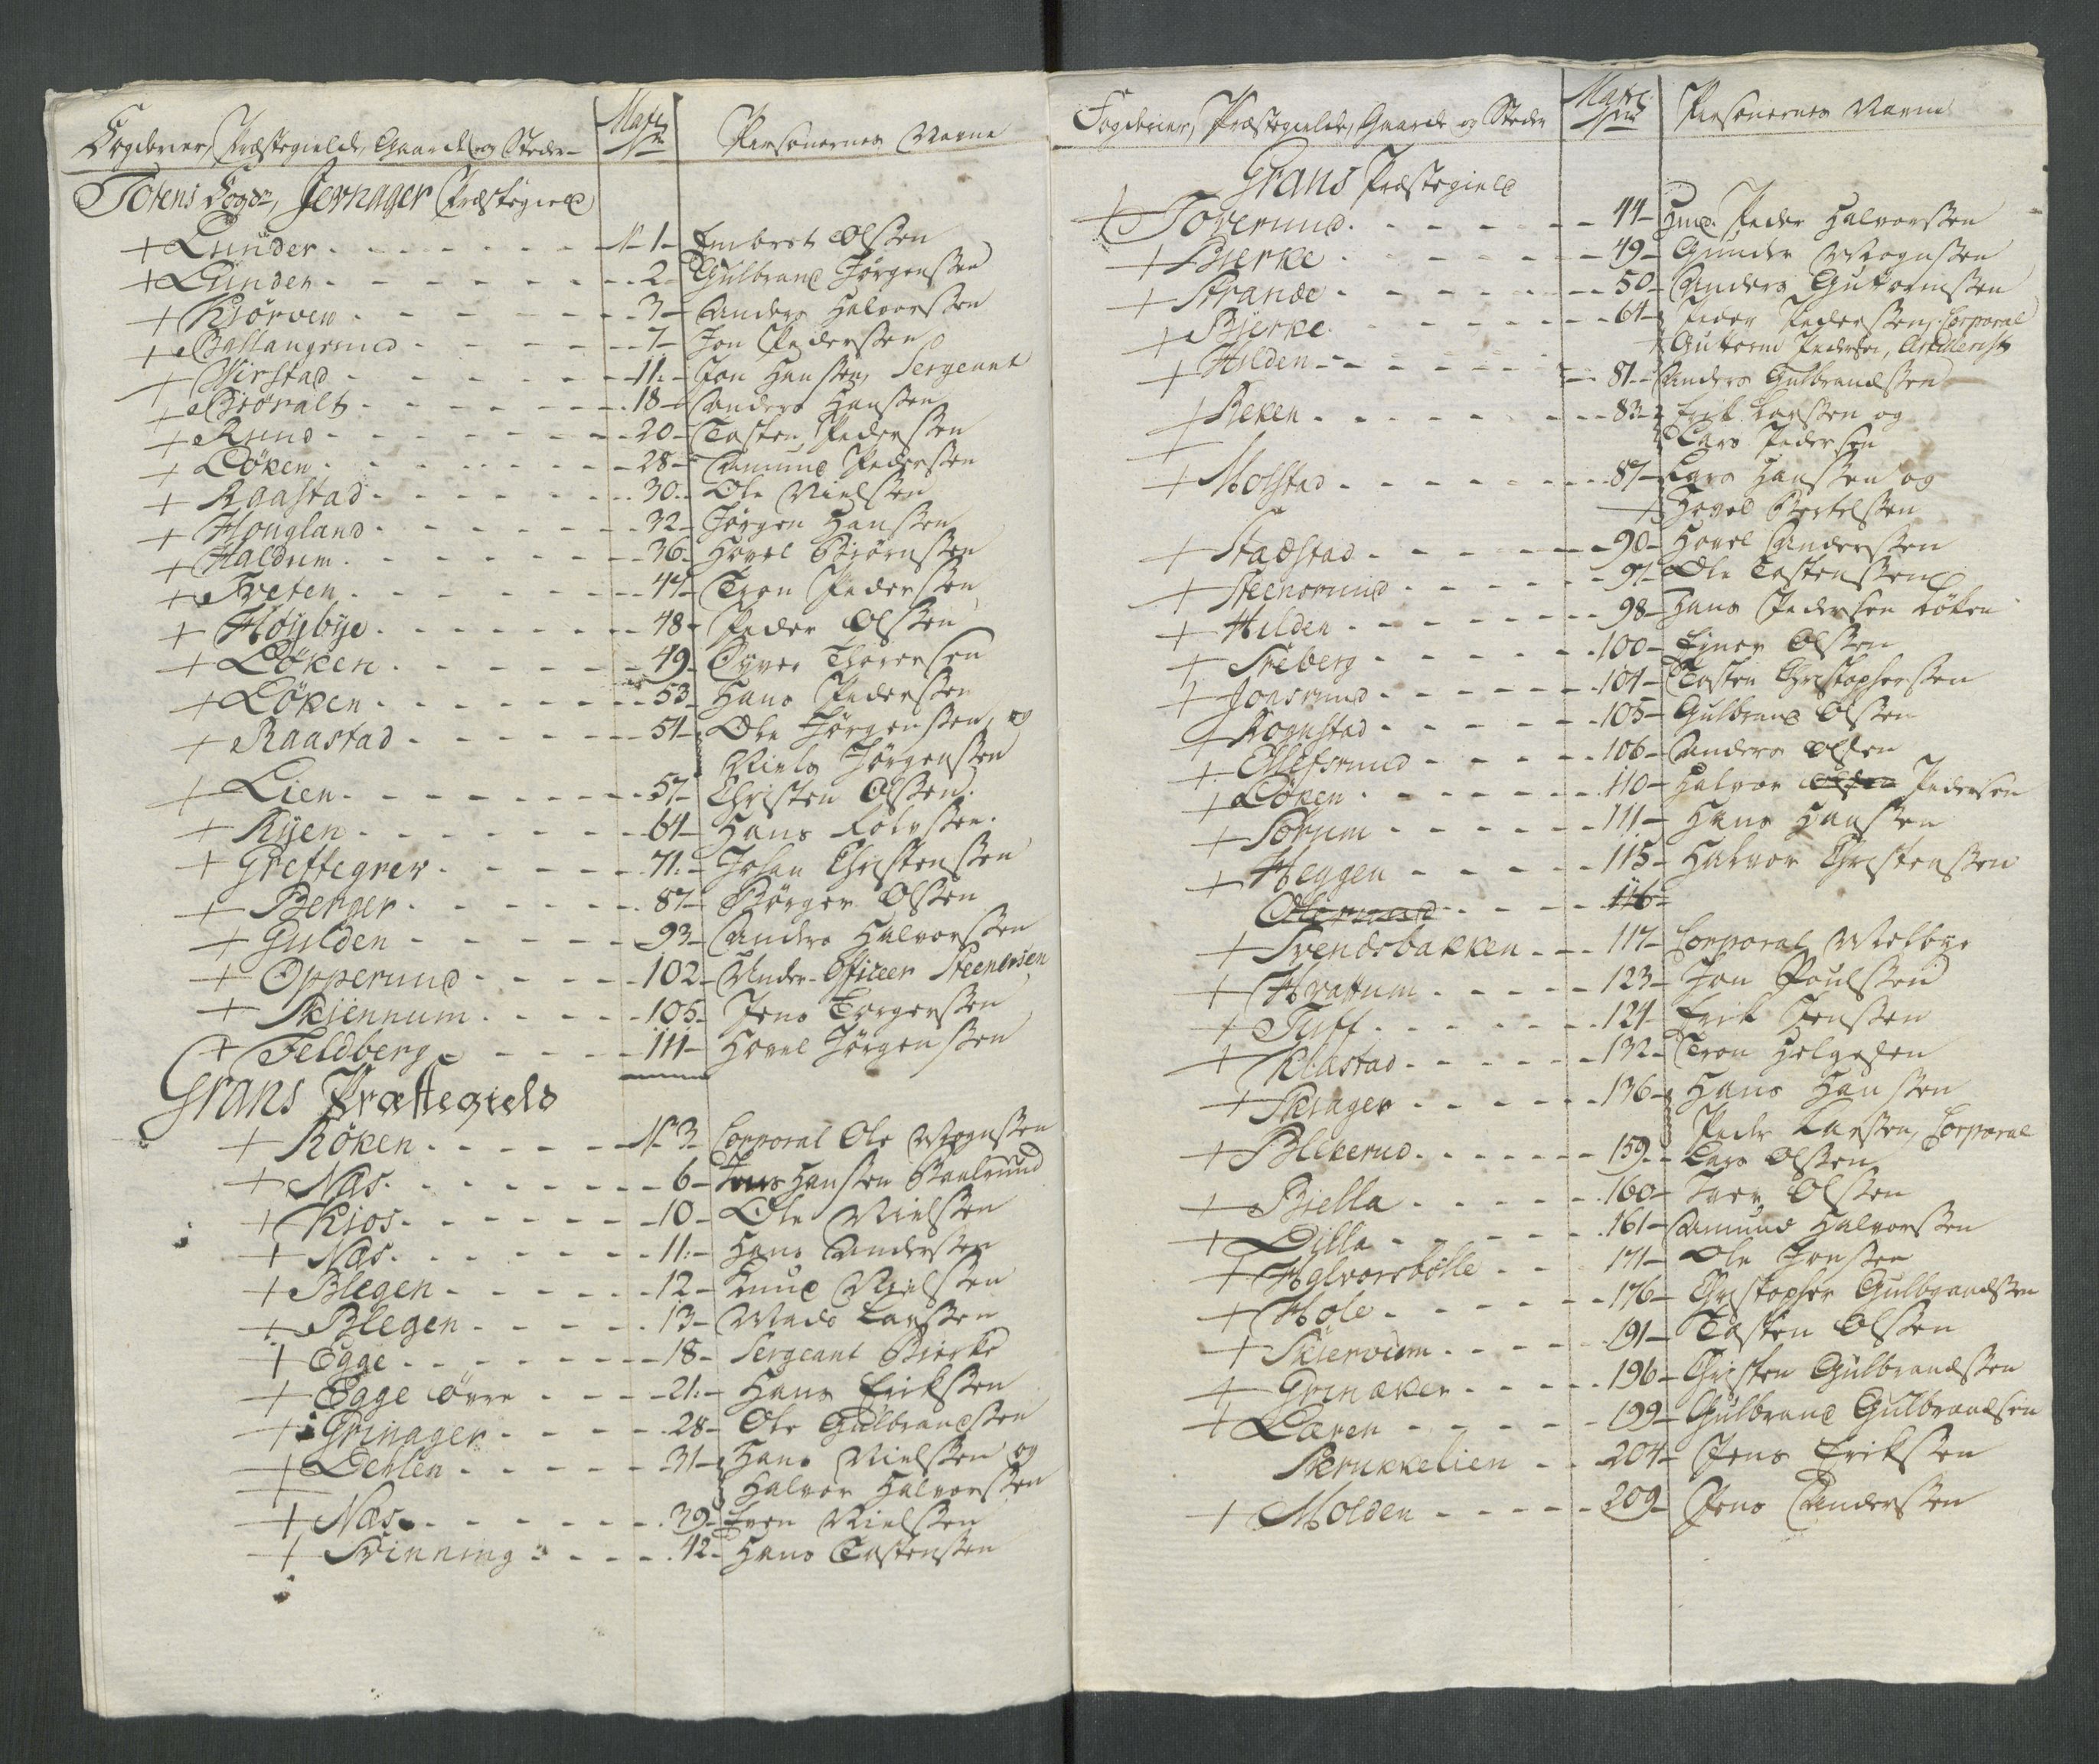 Fogderier, Præstegield, Gaarde og Steder Matr No Personernes Navne
Totens Fogd. Jevnager Præstegield
+ Lunder - - - No 1 - Embret Olssen
+ Lunden - - - 2 - Gulbrand Jørgenssen
+ Kiørven - - - 3 - Anders Halvorssen
+ Ballangrud - - - 7 - Jon Pederssen
+ Virstad - - - 11 - Jon Hanssen, Sergeant
+ Bioralt - - - 18 - Anders Hanssen
+ Ruud - - - 20 - Tosten Pederssen
+ Løken - - - 28 - Amund Pederssen
+ Raastad - - - 30 - Ole Nielssen
+ Hougland - - - 32 - Jørgen Hanssen
+ Haldum - - - 36 - Hovel Biørnssen
+ Tveten - - - 44 - Tron Pederssen
+ Høybye - - - 48 - Peder Olssen
+ Løken - - - 49 - Syver Thoresen
+ Løken - - - 53 - Hans Pederssen
+ Raastad - - - 54 - Ole Jørgenssen og
Niels Jørgenssen
+ Lien - - - 57 - Christen Olssen
+ Ryen - - - 64 - Hans
+ Greftegrev - - - 71 - Johan Christenssen
+ Berger - - - 87 - Børger Olssen
+ Gulden - - - 93 - Anders Halvorssen
+ Opperuud - - - 102 - Under-Officeer Steenersen
+ Skiennum - - - 105 - Jens Torgerssen
+ Feldberg - - - 111 - Hovel Jørgenssen
Grans Præstegield
+ Røken - - - No 3 - Corporal Ole Mognssen
+ Næs - - - 6 - Jens Hanssen
+ Kios - - - 10 - Ole Nielssen
+ Næs - - - 11 - Hans Anderssen
+ Blegen - - - 12 - Knud Nielssen
+ Blegen - - - 13 - Mads Larssen
+ Egge - - - 18 - Sergeant Bierke
+ Egge øvre - - - 21 - Hans Erikssen
+ Grinager - - - 28 - Ole Gulbrandssen
+ Dehlen - - - 31 - Hans Nielssen og
+ Halvor Halvorssen
+ Næs - - - 39 - Iver Nielssen
+ Svinning - - - 42 - Hans Tostenssen
Fogderier, Præstegield, Gaarde og Steder Matr No Personernes Navne
Grans Præstegield
+ Toverud - - - 44 - Hmd. Peder Halvorssen
+ Bierke - - - 49 - Gunder Mognssen
+ Strande - - - 50 - Anders Gutormssen
+ Bierke - - - 64 - Peder Pederssen, Corporal
+ Gutorm Pederssen, Artillerist
+ Hilden - - - 81 - Anders Gulbrandssen
+ Reken - - - 83 - Erik Larssen og
+ Lars Pedersen
+ Molstad - - - 87 - Lars Hanssen og
+ Hovel Bertelssen
+ Stadstad - - - 90 - Hovel Anderssen
+ Steensruud - - - 97 - Ole Tostenssen
+ Hilden - - - 98 - Hans Pedersen Løken
+ Freberg - - - 100 - Einer Olssen
+ Jonsruud - - - 104 - Tosten Christopherssen
+ Rognstad - - - 105 - Gulbrand Olssen
+ Ellefsruud - - - 106 - Anders Olssen
+ Løken - - - 110 - Halvor Olssen Pedersen
+ Sørum - - - 111 - Hans Hanssen
+ Heggen - - - 115 - Halvor Christenssen
Olerud - - - 116 -
+ Svendsbakken - - - 117 - Corporal Melbye
+ Hvattum - - - 123 - Jon Poulssen
+ Tuff - - - 124 - Erik Jenssen
+ Klæstad - - - 132 - Tron Helgesen
+ Skiager - - - 136 - Hans Hanssen
Peder Larssen, Corporal
+ Blekerud - - - 159 - Lars Olssen
+ Biella - - - 160 - Iver Olssen
+ Lilla - - - 161 - Amund Halvorssen
+ Halvorsbølle - - 171 - Ole Jonssen
+ Hole - - - 176 - Christopher Gulbrandssen
+ Skiervum - - - 191 - Tosten Olssen
+ Grinaker - - - 196 - Christen Gulbrandssen
+ Dæven - - - 199 - Gulbrand Gulbrandsen
Skrukkelien - - 204 - Jens Erikssen
+ Molden - - - 209 - Jens Anderssen